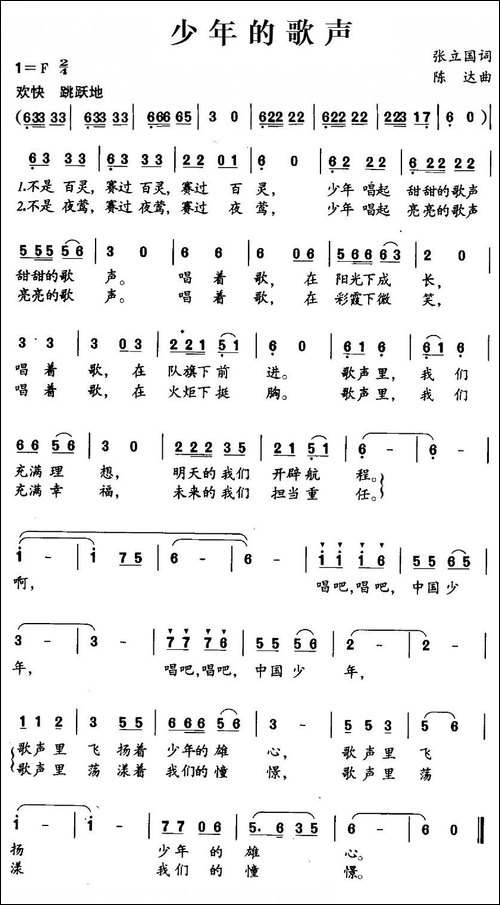 少年的歌声
1=F 2/4
张立国词
陈 达曲
欢快 跳跃地
(633 33 | 633 33 | 666 65 | 3 0 | 622 22 | 622 22 | 223 17 | 6 0) |
63 33 | 33 33 | 22 01 | 6 0 | 62 22 | 6 22 22 |
1.不是 百灵,赛过 百灵,赛过 百 灵, 少年 唱起 甜甜的歌声
2.不是 夜莺,赛过 夜莺,赛过 夜 莺, 少年 唱起 亮亮的歌声
555 56 | 3 0 | 6 6 | 6 05 | 566 63 | 2 0 |
甜甜的歌 声。 唱 着 歌, 在 阳光下成 长,
亮亮的歌 声。 唱 着 歌, 在 彩霞下微 笑,
3 3 | 3 03 | 2·21 51 | 6 0 | 616 | 1 61 |
唱 着 歌, 在 队旗下前 进。 歌声里, 我 们
唱 着 歌, 在 火炬下挺 胸。 歌声里, 我 们
66 56 | 3 0 | 222 35 | 21 51 | 6 - | 6 - |
充满理 想, 明天的我们 开辟航 程。
充满幸 福, 未来的我们 担当重 任。
1 - | 1 75 | 6 - | 6 - | 11 16 | 55 65 |
啊, 唱吧,唱吧, 中国少
3 - | 3 - | 77 76 | 55 56 | 2 - | 2 - |
年, 唱吧,唱吧, 中国少 年,
11 2 | 3 55 | 666 56 | 3 - | 55 3 | 5 6 |
歌声里 飞 扬着 少年的雄 心, 歌声里 飞
歌声里 荡 漾着 我们的憧 憬, 歌声里 荡
1 - | 1 - | 77 06 | 5. 6 35 | 6 - | 6 0 ‖
扬 少年 的 雄 心。
漾 我们 的 憧 憬。